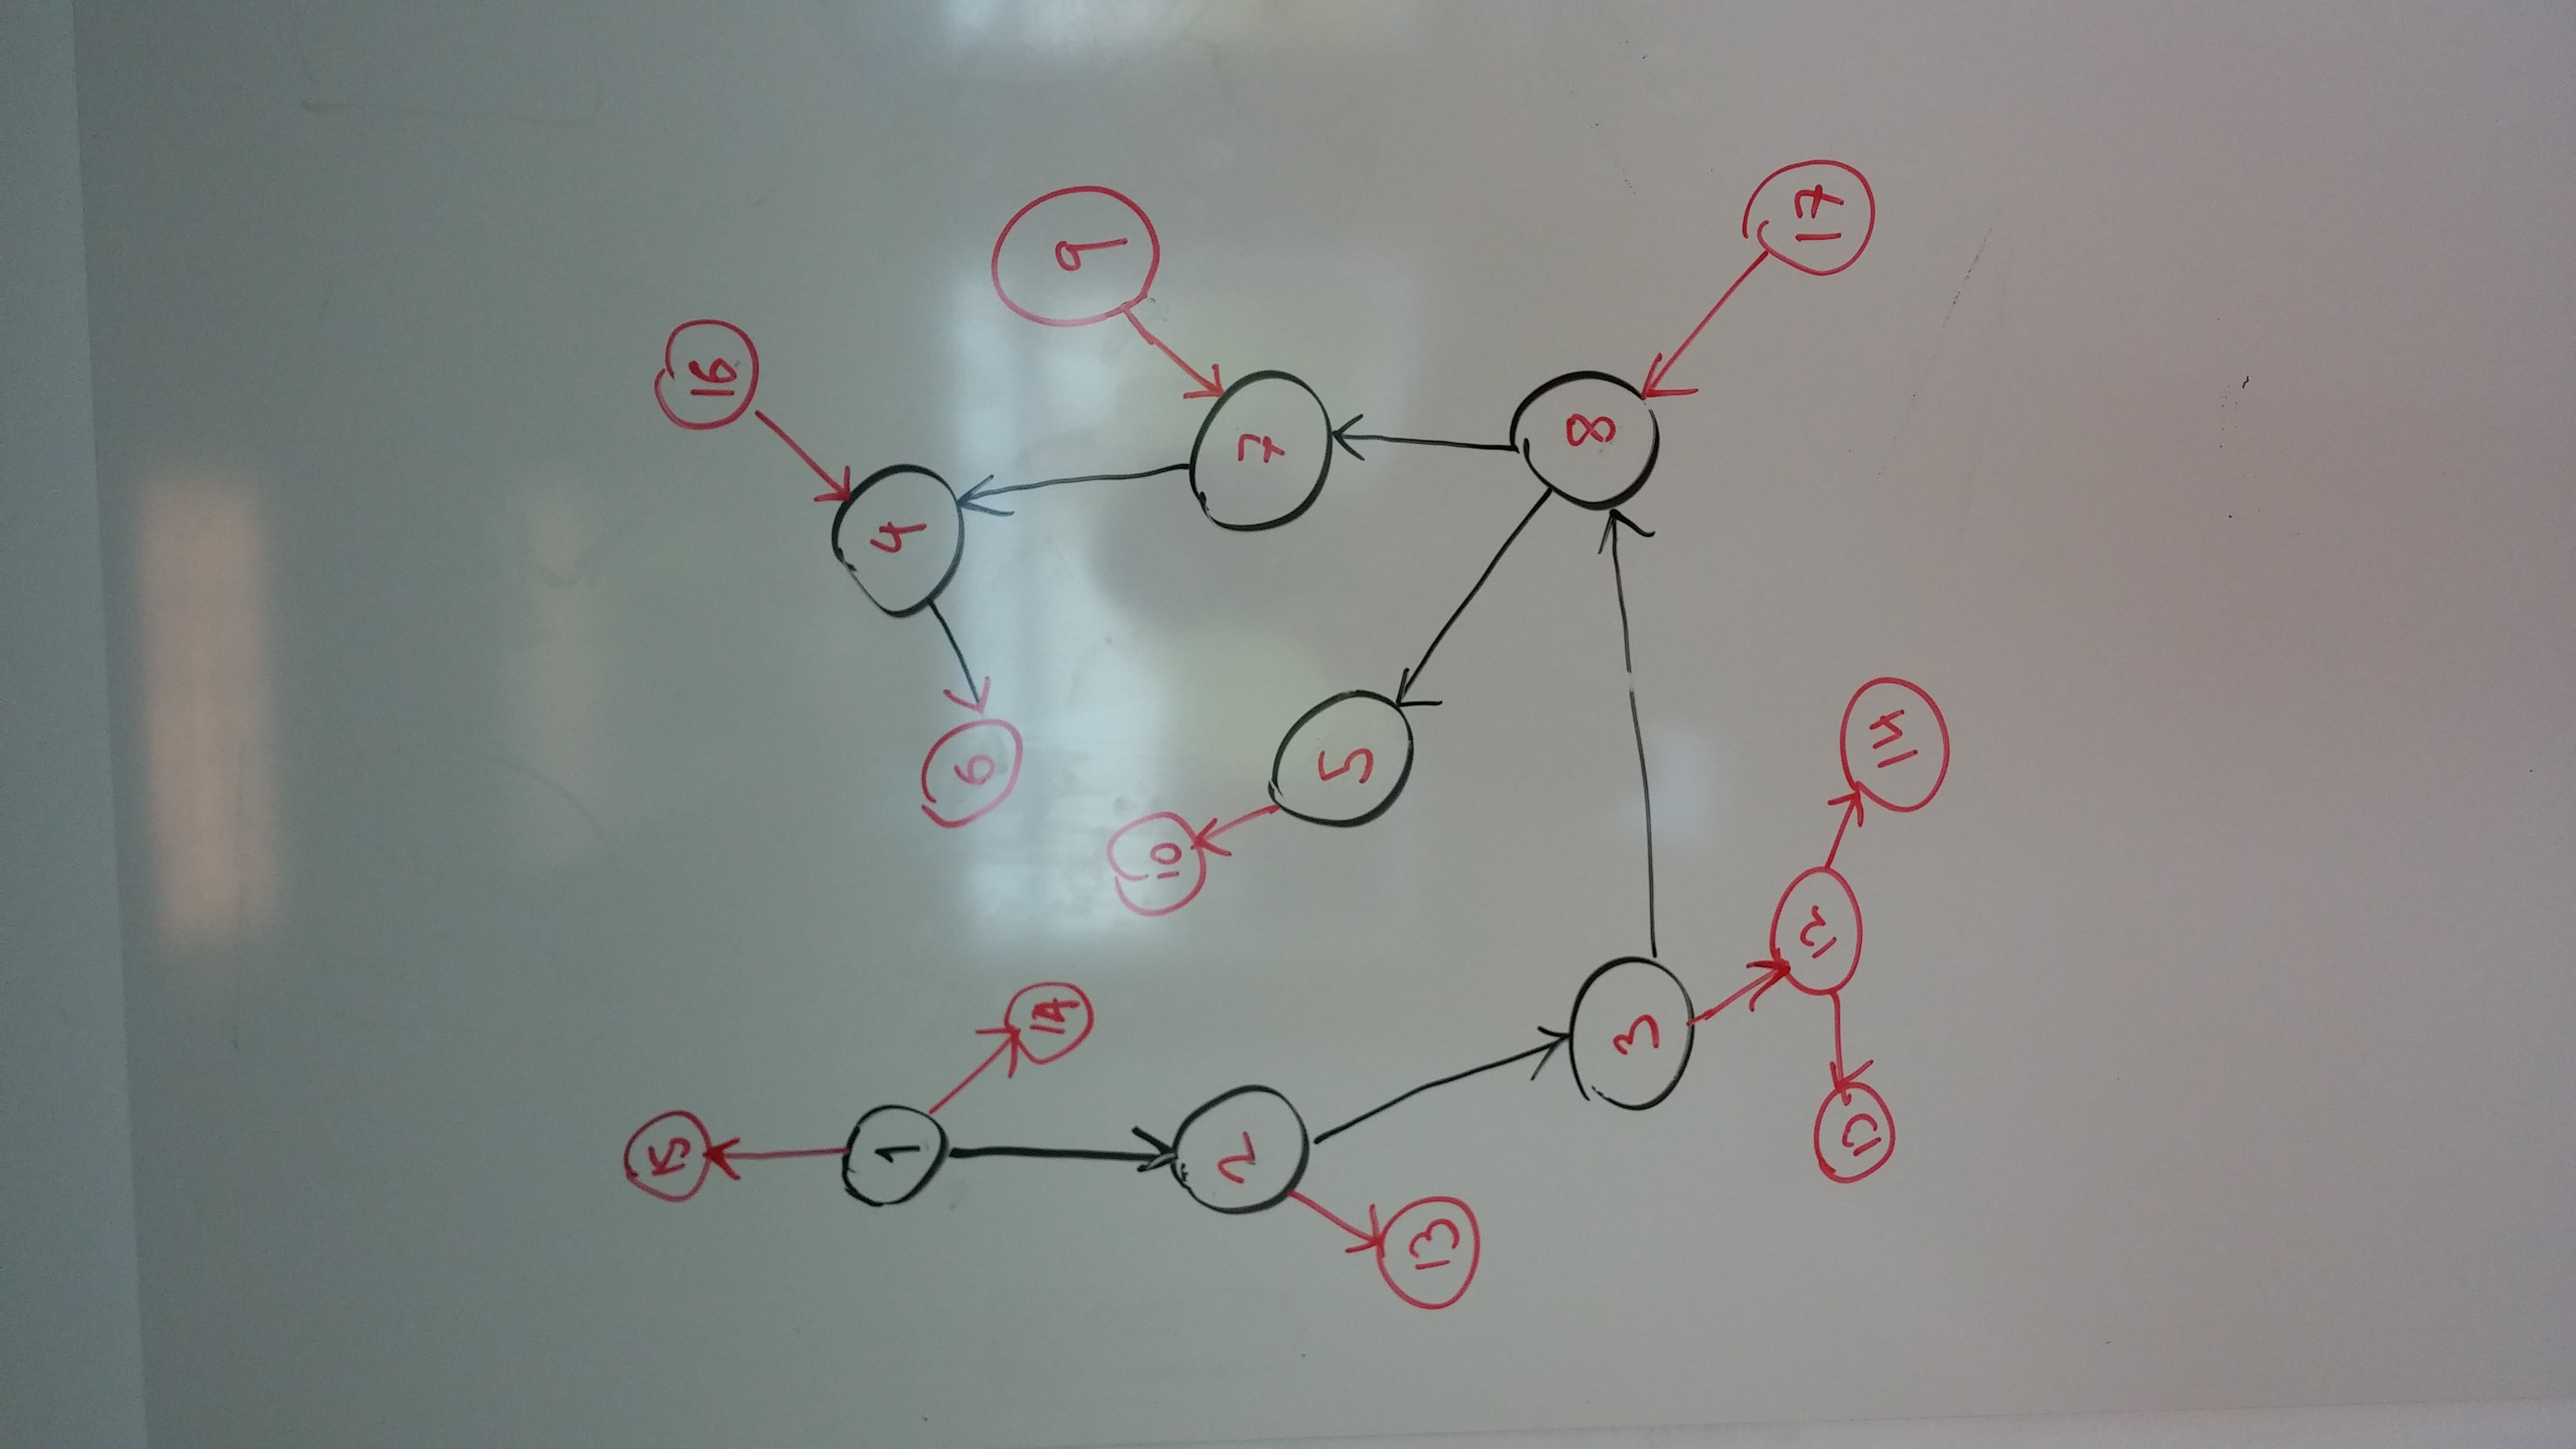 15
16
1
4
6
14
9
10
2
7
5
13
8
3
12
17
13
14